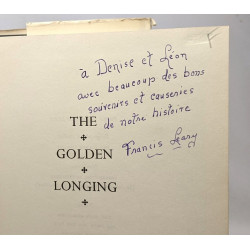 à Denise et Léon
avec beaucoup des bons
souvenirs et causeries
de notre histoire
THE
GOLDEN
Francis Leary
LONGING